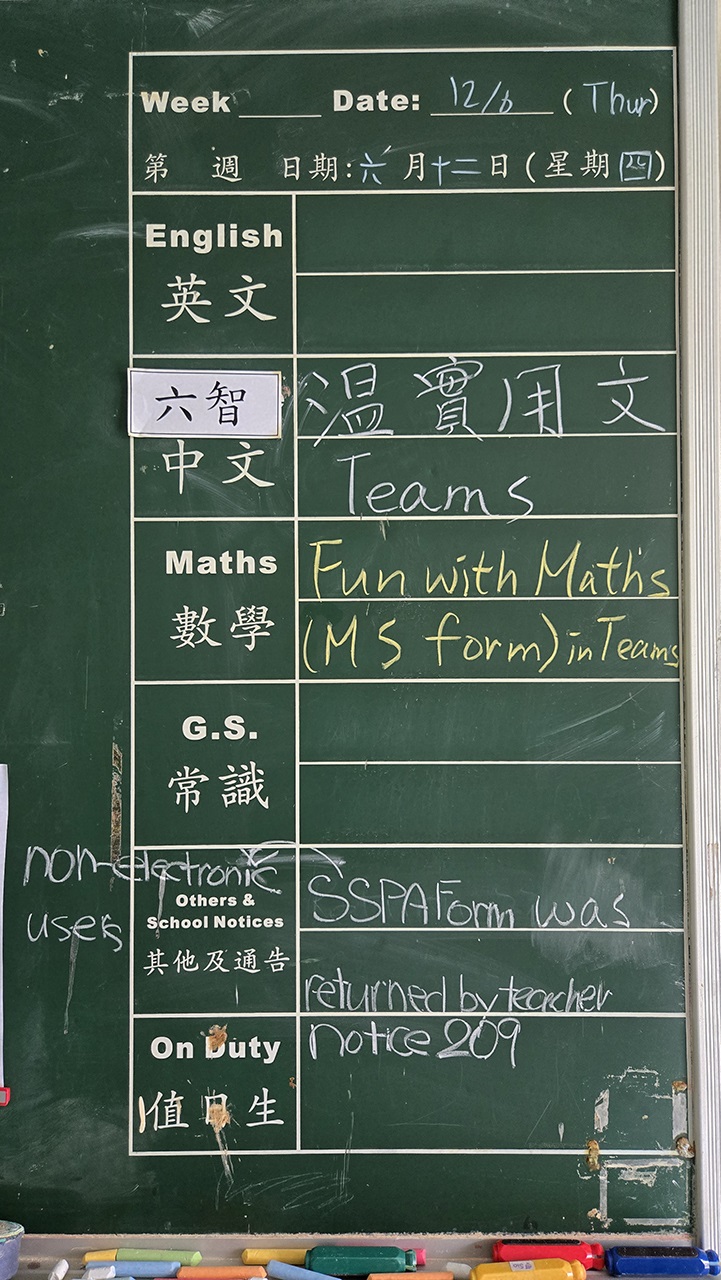 Week Date: 12/6 (Thur)
第 週 日期:六月十二日(星期四)
English
英文
六智
中文
温實用文
Teams
Maths
數學
Fun with Maths
(MS form) in Teams
G.S.
常識
non-electronic
users
Others &
School Notices
其他及通告
SSPA Form was
returned by teacher
On Duty
值日生
notice 209